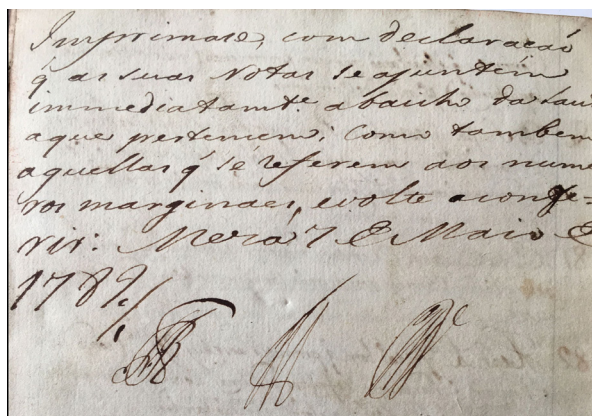 Imprimase, com declaraçaõ
q̃ as suas Notas se ajuntem
immediatamte. abaicho da Lau
a que pertencem; como tambem
aquellas q̃ se referem aos nume
ros marginaes, e volte a confe=
rir: Meza 7 de Maio de
1789,,